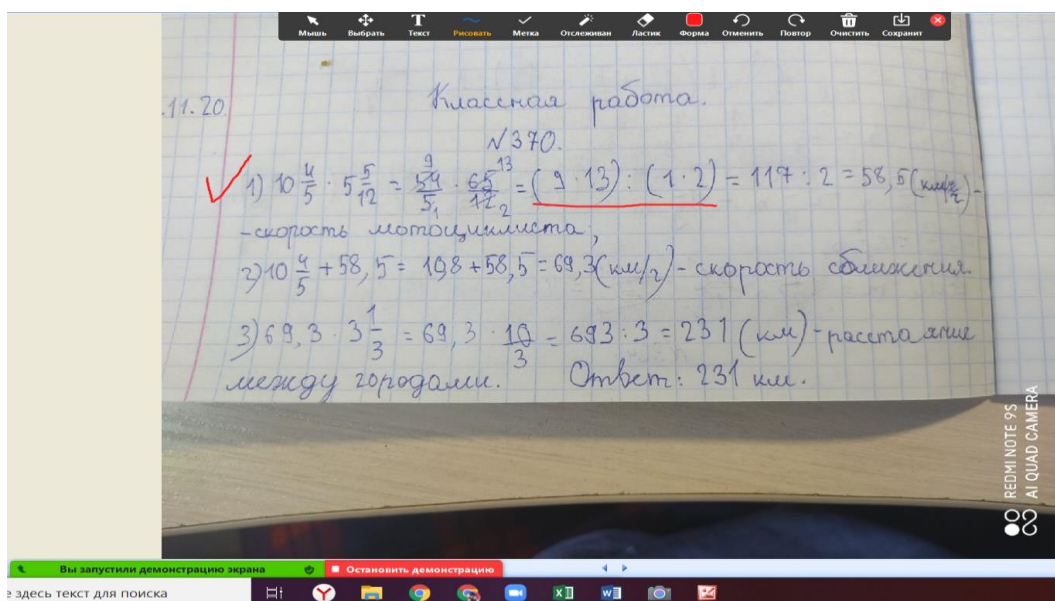 Мышь Выбрать Текст Рисовать Метка Отслеживан Ластик Форма Отменить Повтор Очистить Сохранит
.11.20. Классная работа.
№370.
1) 10 4/5 · 5 5/12 = 54/5 · 65/12 = (9 · 13) : (1 · 2) = 117 : 2 = 58,5 (км/г) -
- скорость мотоциклиста;
2) 10 4/5 + 58,5 = 10,8 + 58,5 = 69,3 (км/г) - скорость сближения.
3) 69,3 · 3 1/3 = 69,3 · 10/3 = 693 : 3 = 231 (км) - расстаяние
между городами. Ответ: 231 км.
REDMI NOTE 9S
AI QUAD CAMERA
Вы запустили демонстрацию экрана Остановить демонстрацию
е здесь текст для поиска